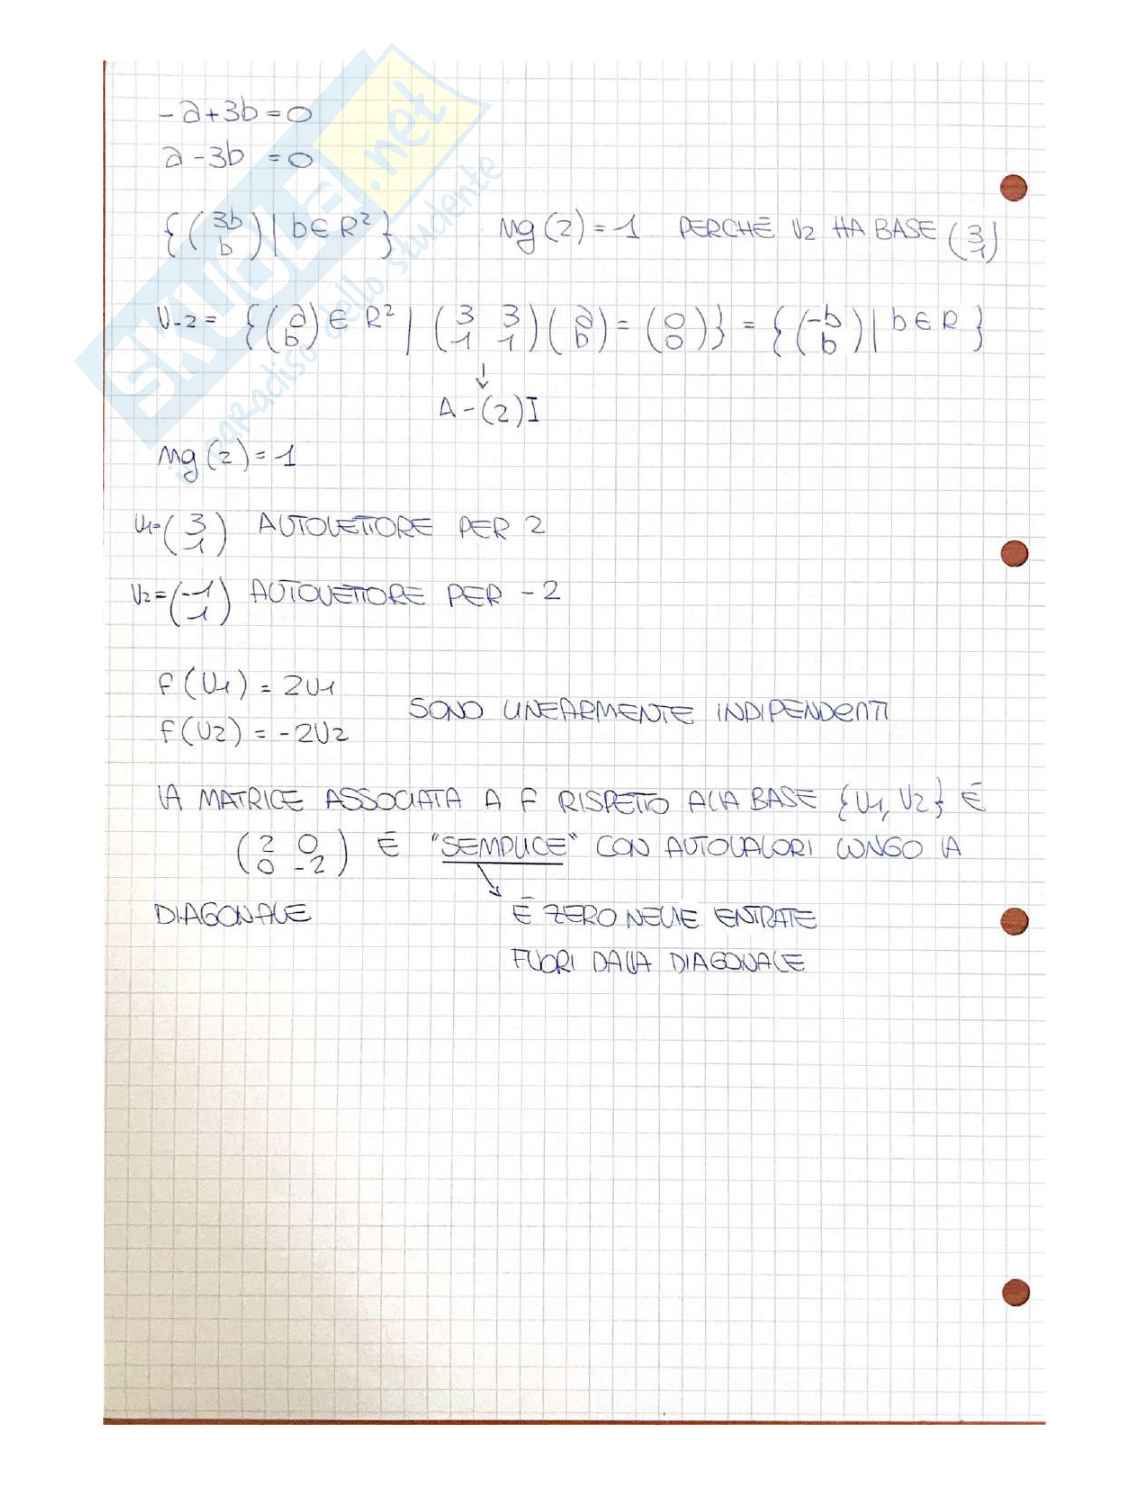 -a+3b=0
a-3b =0
{(3b b) | b∈R²} mg(2)=1 PERCHÉ V2 HA BASE (3 1)
V-2= {(a b)∈R² | (3 3 1 1)(a b)=(0 0)} = {(-b b) | b∈R}
A-(2)I
mg(2)=1
V1=(3 1) AUTOVETTORE PER 2
V2=(-1 1) AUTOVETTORE PER -2
f(V1) = 2V1
SONO LINEARMENTE INDIPENDENTI
f(V2) = -2V2
LA MATRICE ASSOCIATA A F RISPETTO ALLA BASE {V1, V2} É
(2 0 0 -2) É "SEMPLICE" CON AUTOVALORI LUNGO LA
DIAGONALE É ZERO NELLE ENTRATE
FUORI DALLA DIAGONALE
SKUOLA.net
il paradiso dello studente